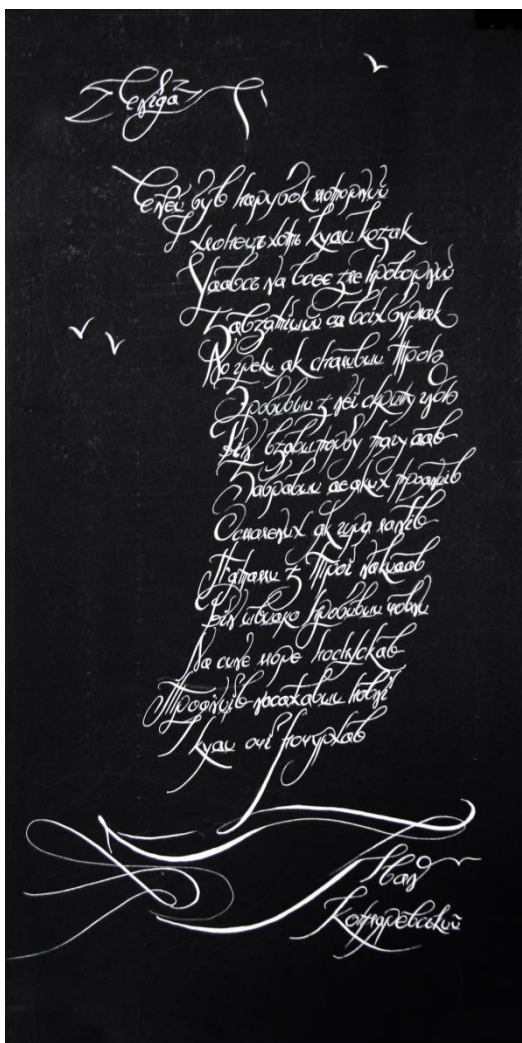 Енеїда
Еней був парубок моторний
І хлопець хоть куди козак
Удавсь на всеє зле проворний
Завзятіший од всіх бурлак
Но греки як спаливши Трою
Зробивши з неї скирту гною
Він взявши торбу тягу дав
Забравши деяких троянців
Осмалених як гиря ланців
П'ятами з Трої накивав
Він швидко зробивши човни
На синє море поспускав
Троянців насажавши повні
І куди очі почухрав
Іван
Котляревський